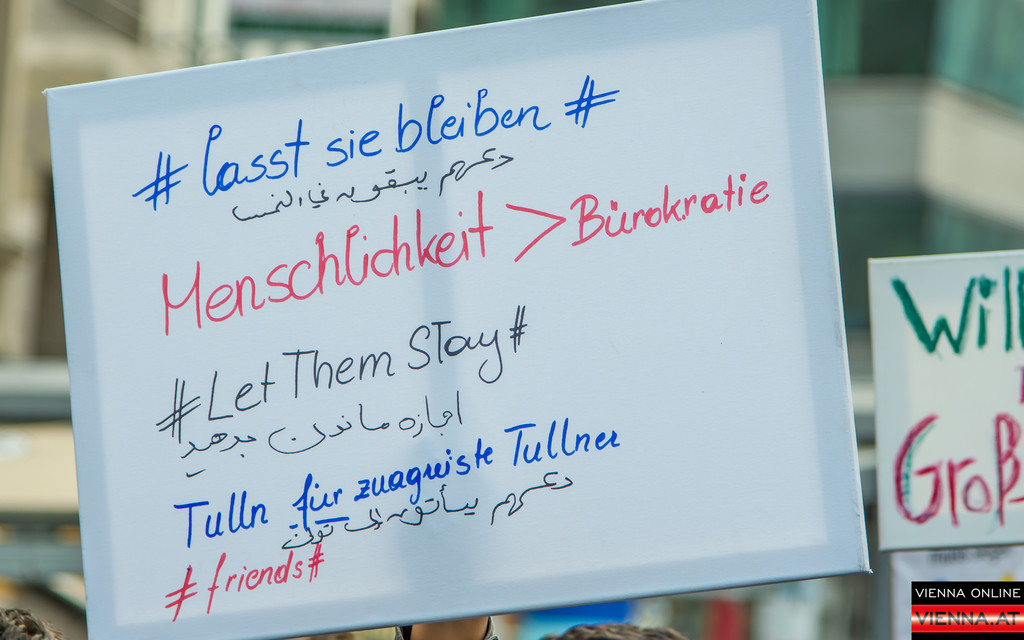 # lasst sie bleiben #
دعهم يبقون في النمسا
Menschlichkeit > Bürokratie
#Let Them Stay#
اجازه ماندن بدهید
Tulln für zuagreiste Tullner
دعهم يأتون الى تولن
#friends#
Will
Groß
VIENNA ONLINE
VIENNA.AT